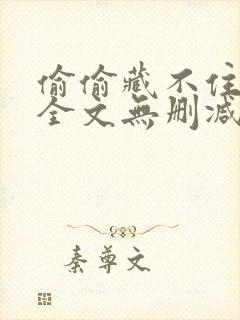 偷偷藏不住
全文無刪減
秦尊文